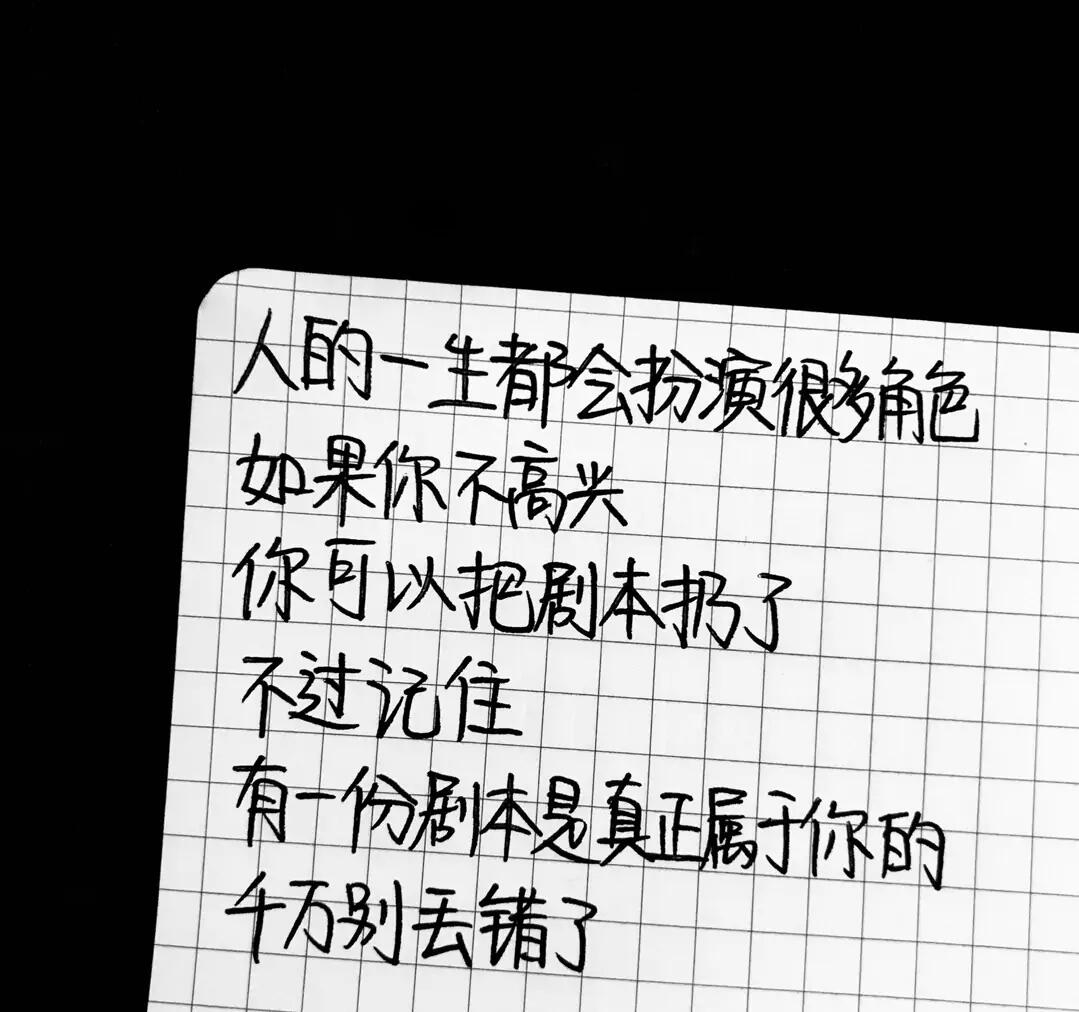 人的一生都会扮演很多角色
如果你不高兴
你可以把剧本扔了
不过记住
有一份剧本是真正属于你的
千万别丢错了